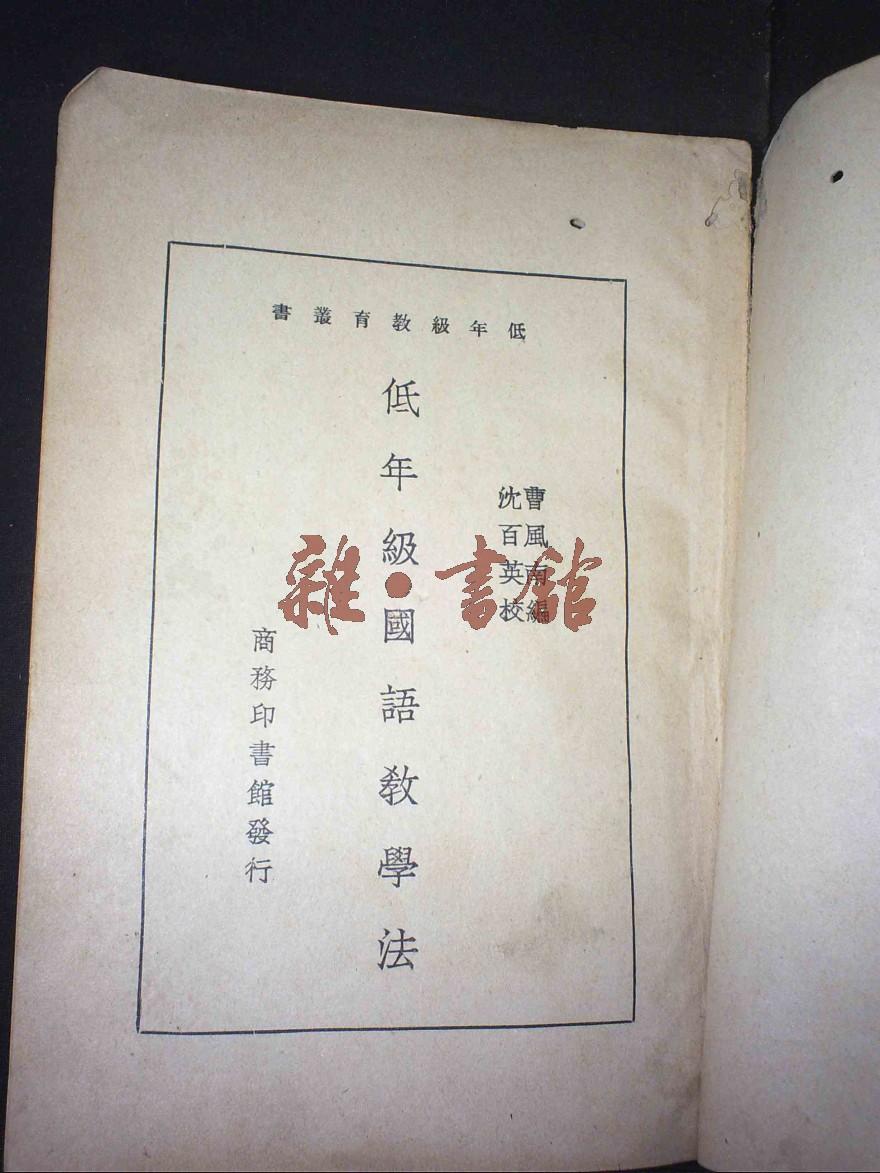 低年級教育叢書
曹風南編
沈百英校
低年級國語教學法
商務印書館發行
雜·書館